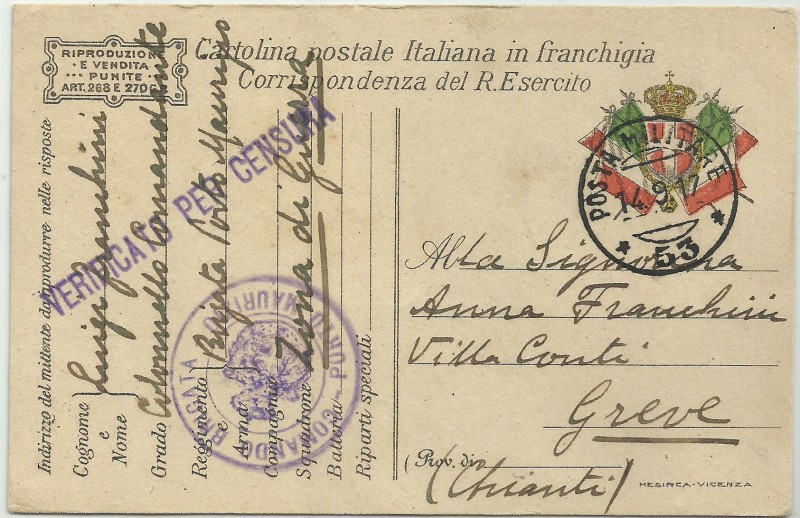 RIPRODUZIONE
E VENDITA
PUNITE
ART. 268 E 270 C.P.
Cartolina postale Italiana in franchigia
Corrispondenza del R. Esercito
POSTA MILITARE
14.9.17
53
Alla Signorina
Anna Franchini
Villa Conti
Greve
(Prov. di
(Chianti)
MESIRCA-VICENZA
Indirizzo del mittente da riprodurre nelle risposte
Cognome
e
Nome
Luigi Franchini
Grado Colonnello Comandante
Reggimento
e
Arma
Brigata Porto Maurizio
Compagnia
Squadrone
Batteria
Zona di Guerra
Riparti speciali
VERIFICATO PER CENSURA
COMANDO BRIGATA PORTO MAURIZIO